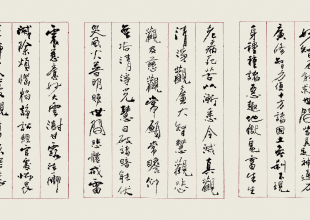 廣修智方便十方諸國土無剎不現
身種種諸惡趣地獄鬼畜生生
老病死苦以漸悉令滅真觀
清淨觀廣大智慧觀悲
觀及慈觀常願常瞻仰
無垢清淨光慧日破諸暗能伏
災風火普明照世間悲體戒雷
震慈意妙大雲澍甘露法雨
滅除煩惱焰諍訟經官處怖畏